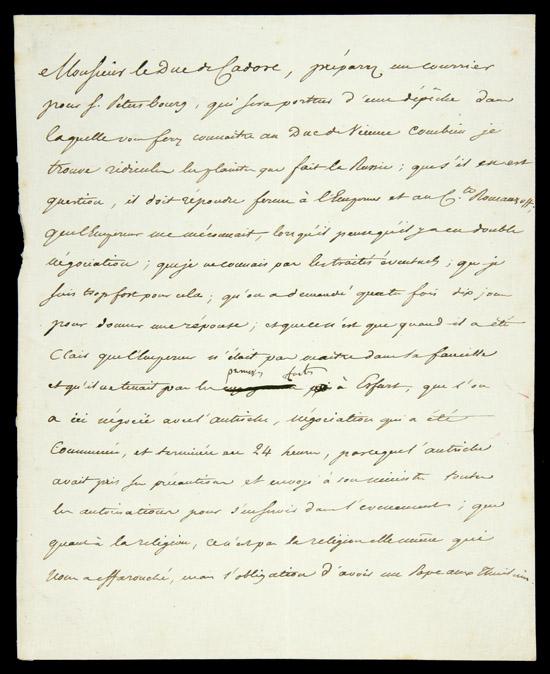 Monsieur le Duc de Cadore, préparez un courrier
pour S. Petersbourg, qui sera porteur d'une dépêche dans
laquelle vous ferez connaitre au Duc de Vicence combien je
trouve ridicules les plaintes que fait la Russie ; que s'il en est
question, il doit répondre ferme à l'Empereur et au C.te Romanzoff,
que l'Empereur me méconnait, lorsqu'il pense qu'il y a eu double
négociation ; que je ne connais pas les traités éventuels ; que je
suis trop fort pour cela ; qu'on a demandé quatre fois dix jours
pour donner une réponse ; et que ce n'est que quand il a été
clair que l'Empereur n'était pas maitre dans sa famille
et qu'il ne tenait pas les
promesses faites
à Erfurt, que l'on
a ici négocié avec l'autriche, négociation qui a été
commencée, et terminée en 24 heures, parce que l'autriche
avait pris ses précautions et envoyé à son ministre toutes
les autorisations pour s'en servir dans l'évenement ; que
quant à la religion, ce n'est pas la religion elle même qui
nous a effarouché, mais l'obligation d'avoir un Pope aux Thuileries.